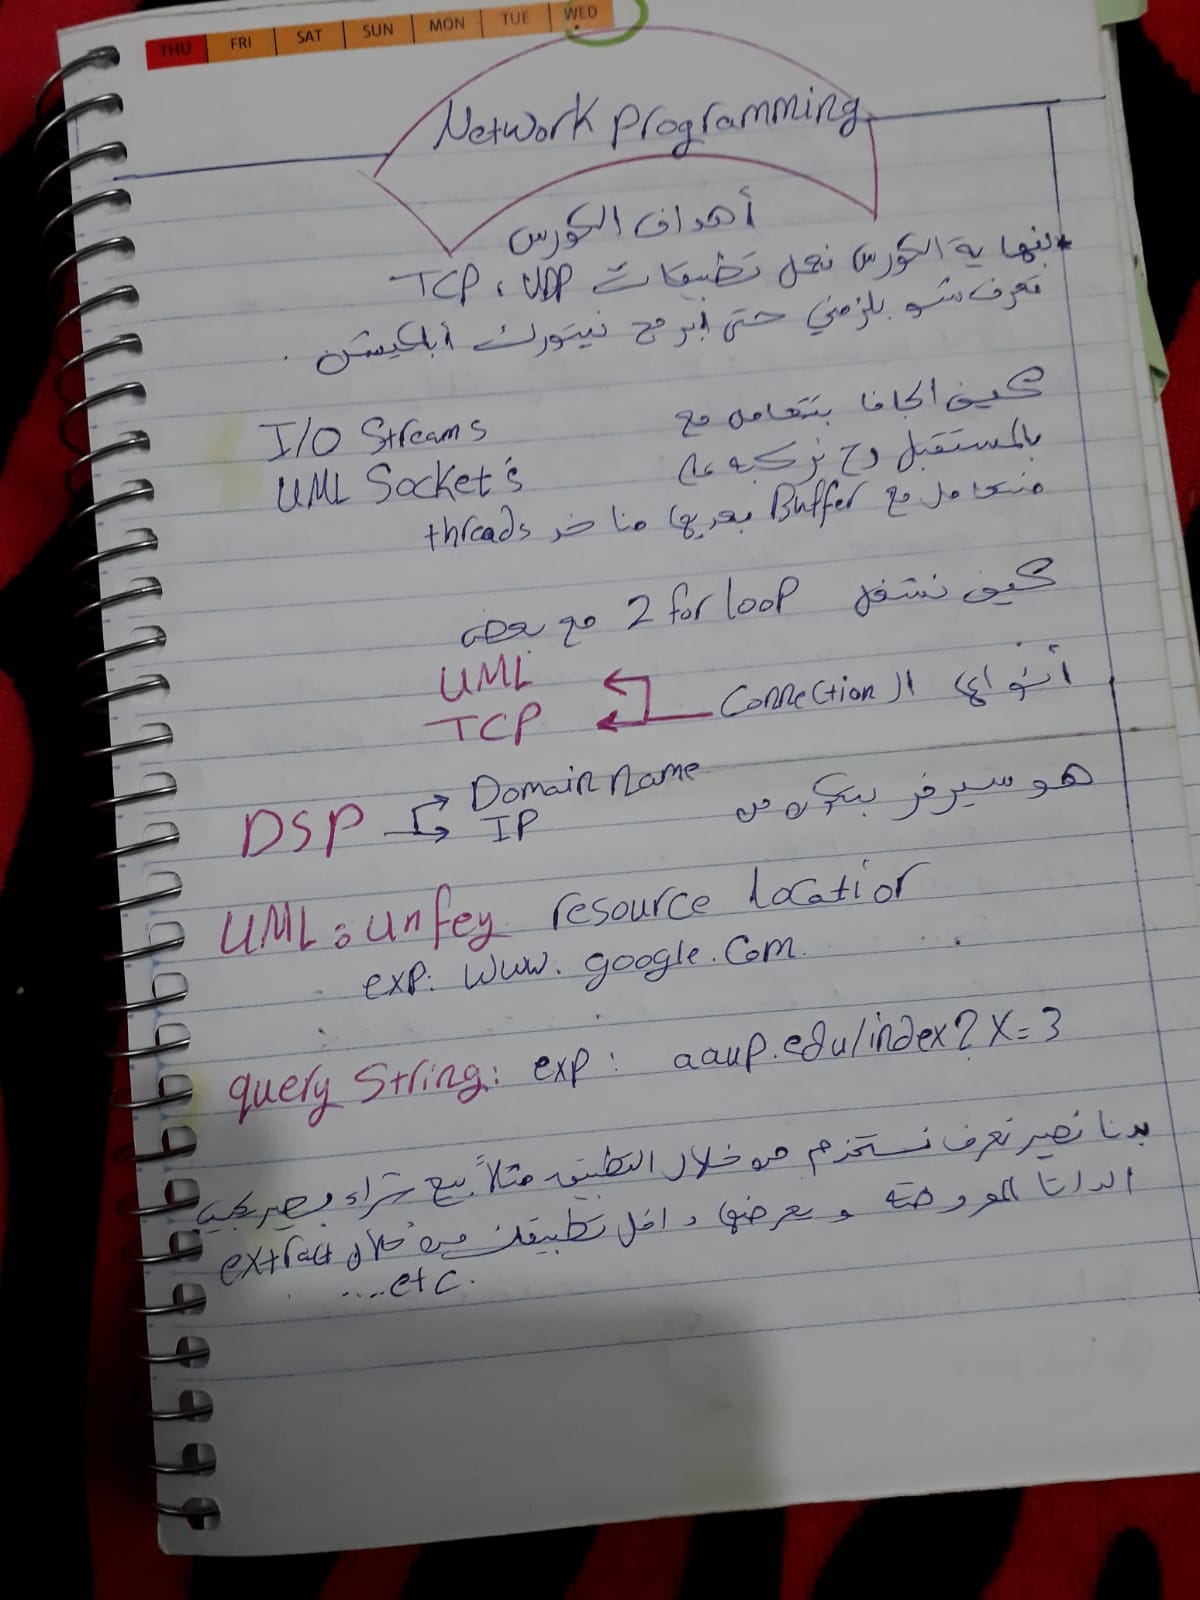 THU FRI SAT SUN MON TUE WED
Network programming
أهداف الكورس
* بنهاية الكورس نعمل تطبيقات TCP ، UDP
نعرف شو بلزمني حتى ابرمج نيتورك أبلكيشن .
كيف الجافا بتتعامل مع I/O Streams
بالمستقبل رح نركبه على UML Socket's
منتعامل مع Buffer بعديها مناخد threads
كيف نشغل 2 for loop مع بعض
أنواع ال Connection
UML
TCP
هو سيرفر بتكون من
DSP
Domain name
IP
UML : unfey resource locatior
exp: www.google.com
query String: exp: aaup.edu/index?X=3
بدنا نصير نعرف نستخدم من خلال التطبيق مثلاً بيع شراء بصير يجيب
الداتا الموجودة و يعرضها داخل تطبيقك من خلال extract
....etc.